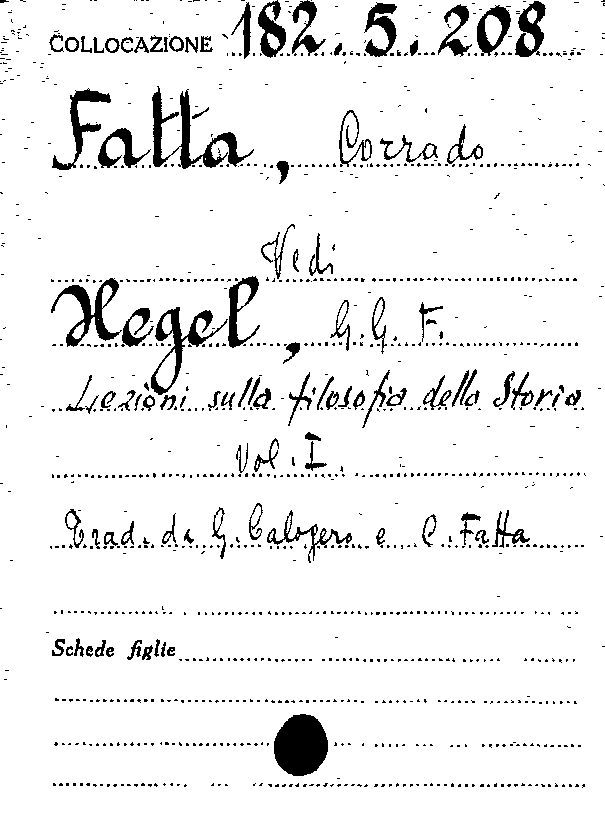 COLLOCAZIONE 182.5.208
Fatta, Corrado
Vedi
Hegel, G.G.F.
Lezioni sulla filosofia della Storia
Vol. I.
Trad. di G. Calogero e C. Fatta
Schede figlie